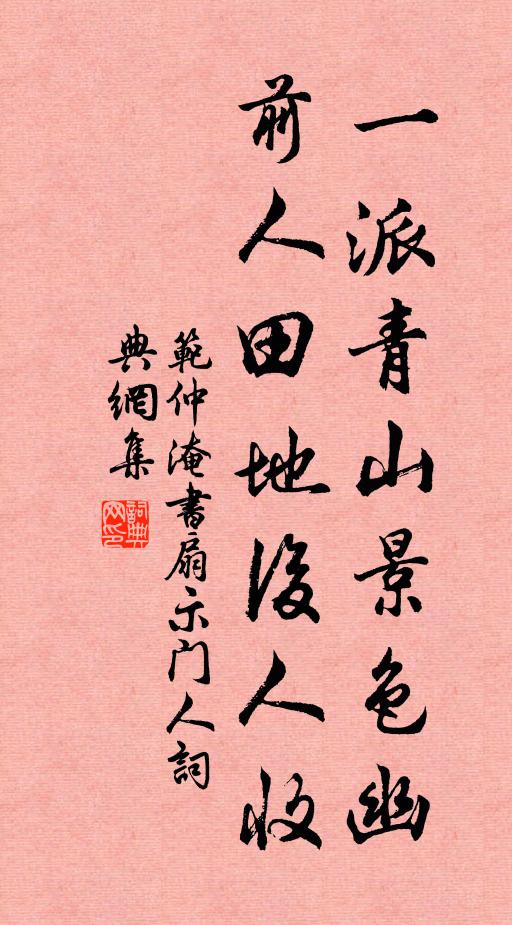 一派青山景色幽
前人田地後人收
範仲淹書扇示门人詞
典網集
詞典网印